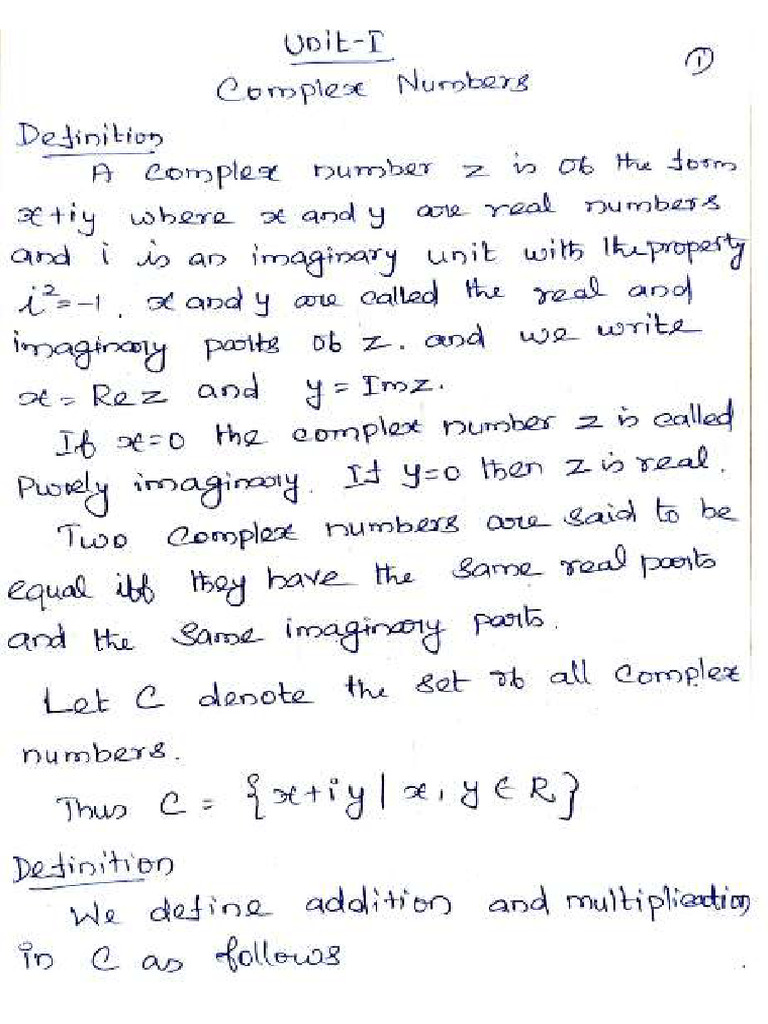 Unit-I
①
Complex Numbers
Definition
A complex number z is of the form
x+iy where x and y are real numbers
and i is an imaginary unit with the property
i²=-1. x and y are called the real and
imaginary parts of z. and we write
x = Re z and y = Im z.
If x=0 the complex number z is called
Purely imaginary. If y=0 then z is real.
Two Complex numbers are said to be
equal iff they have the same real parts
and the same imaginary parts.
Let C denote the set of all complex
numbers.
Thus C = {x+iy | x, y ∈ R}
Definition
We define addition and multiplication
in C as follows